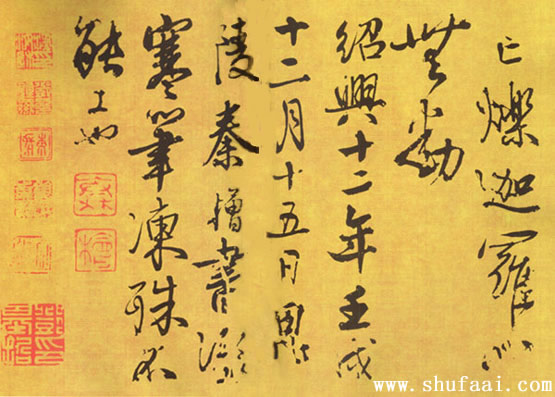 亡爍迦羅心
無動
紹興十二年壬戌
十二月十五日
陵秦檜書深
寒筆凍殊不
能工也
www.shufaai.com